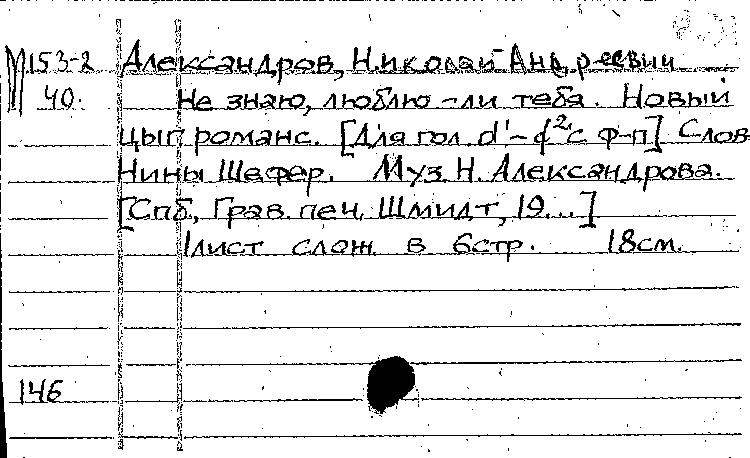 М153-2 Александров, Николай Андреевич
40. Не знаю, люблю-ли тебя. Новый
цыг романс. [Для гол. d'-f²с ф-п] Слов
Нины Шефер. Муз. Н. Александрова.
[Спб, Грав. печ. Шмидт, 19...]
1 лист слож в 6стр. 18см.
146